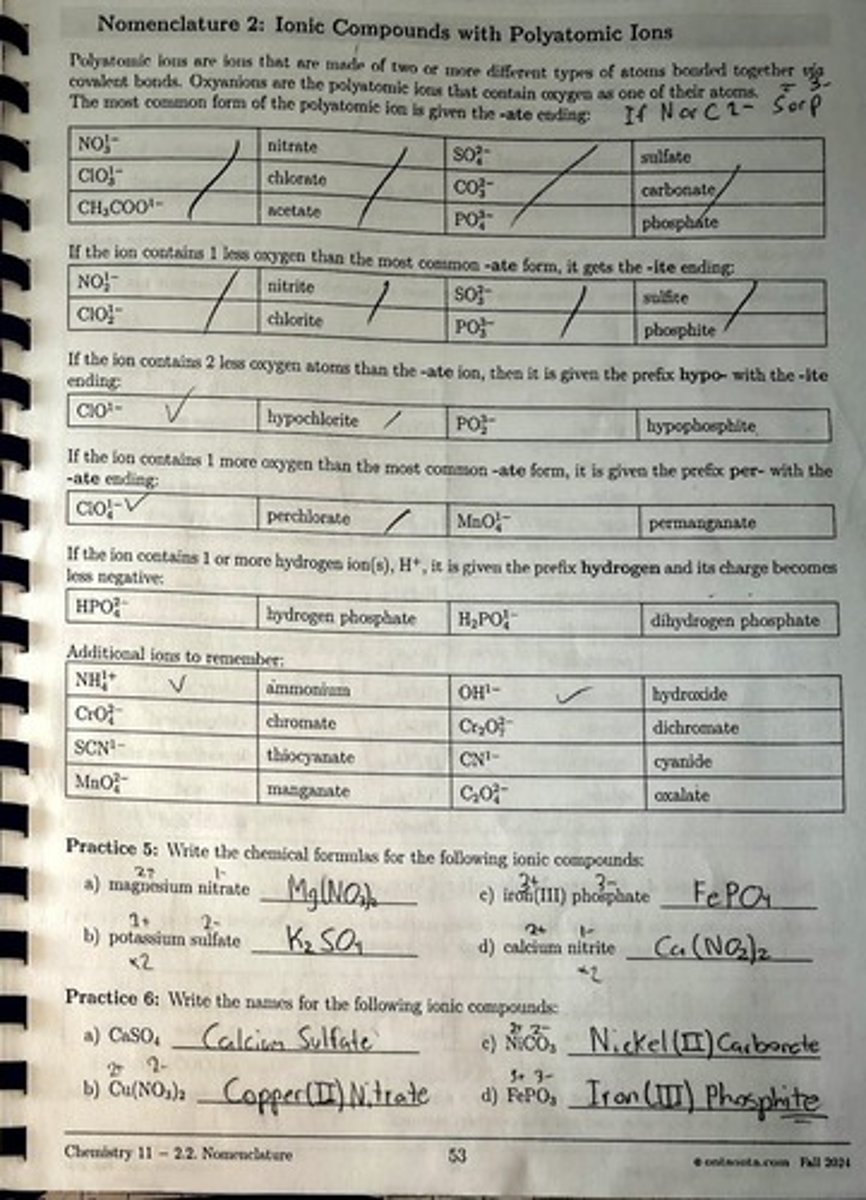 Nomenclature 2: Ionic Compounds with Polyatomic Ions
Polyatomic ions are ions that are made of two or more different types of atoms bonded together via
covalent bonds. Oxyanions are the polyatomic ions that contain oxygen as one of their atoms.
The most common form of the polyatomic ion is given the -ate ending: If N or C 1- S or P
NO₃¹⁻ nitrate SO₄²⁻ sulfate
ClO₃¹⁻ chlorate CO₃²⁻ carbonate
CH₃COO¹⁻ acetate PO₄³⁻ phosphate
If the ion contains 1 less oxygen than the most common -ate form, it gets the -ite ending:
NO₂¹⁻ nitrite SO₃²⁻ sulfite
ClO₂¹⁻ chlorite PO₃³⁻ phosphite
If the ion contains 2 less oxygen atoms than the -ate ion, then it is given the prefix hypo- with the -ite
ending:
ClO¹⁻ ✓ hypochlorite PO₂³⁻ hypophosphite
If the ion contains 1 more oxygen than the most common -ate form, it is given the prefix per- with the
-ate ending:
ClO₄¹⁻ ✓ perchlorate MnO₄¹⁻ permanganate
If the ion contains 1 or more hydrogen ion(s), H⁺, it is given the prefix hydrogen and its charge becomes
less negative:
HPO₄²⁻ hydrogen phosphate H₂PO₄¹⁻ dihydrogen phosphate
Additional ions to remember:
NH₄¹⁺ ✓ ammonium OH¹⁻ ✓ hydroxide
CrO₄²⁻ chromate Cr₂O₇²⁻ dichromate
SCN¹⁻ thiocyanate CN¹⁻ cyanide
MnO₄²⁻ manganate C₂O₄²⁻ oxalate
Practice 5: Write the chemical formulas for the following ionic compounds:
2+ 1- 3+ 3-
a) magnesium nitrate Mg(NO₃)₂ c) iron(III) phosphate FePO₄
2- 2+ 1-
b) potassium sulfate K₂SO₄ d) calcium nitrite Ca(NO₂)₂
×2 ×2
Practice 6: Write the names for the following ionic compounds:
2+ 2-
a) CaSO₄ Calcium Sulfate c) NiCO₃ Nickel(II) Carbonate
2+ 2- 3+ 3-
b) Cu(NO₃)₂ Copper(II) Nitrate d) FePO₃ Iron(III) Phosphite
Chemistry 11 – 2.2. Nomenclature 53 Fall 2024